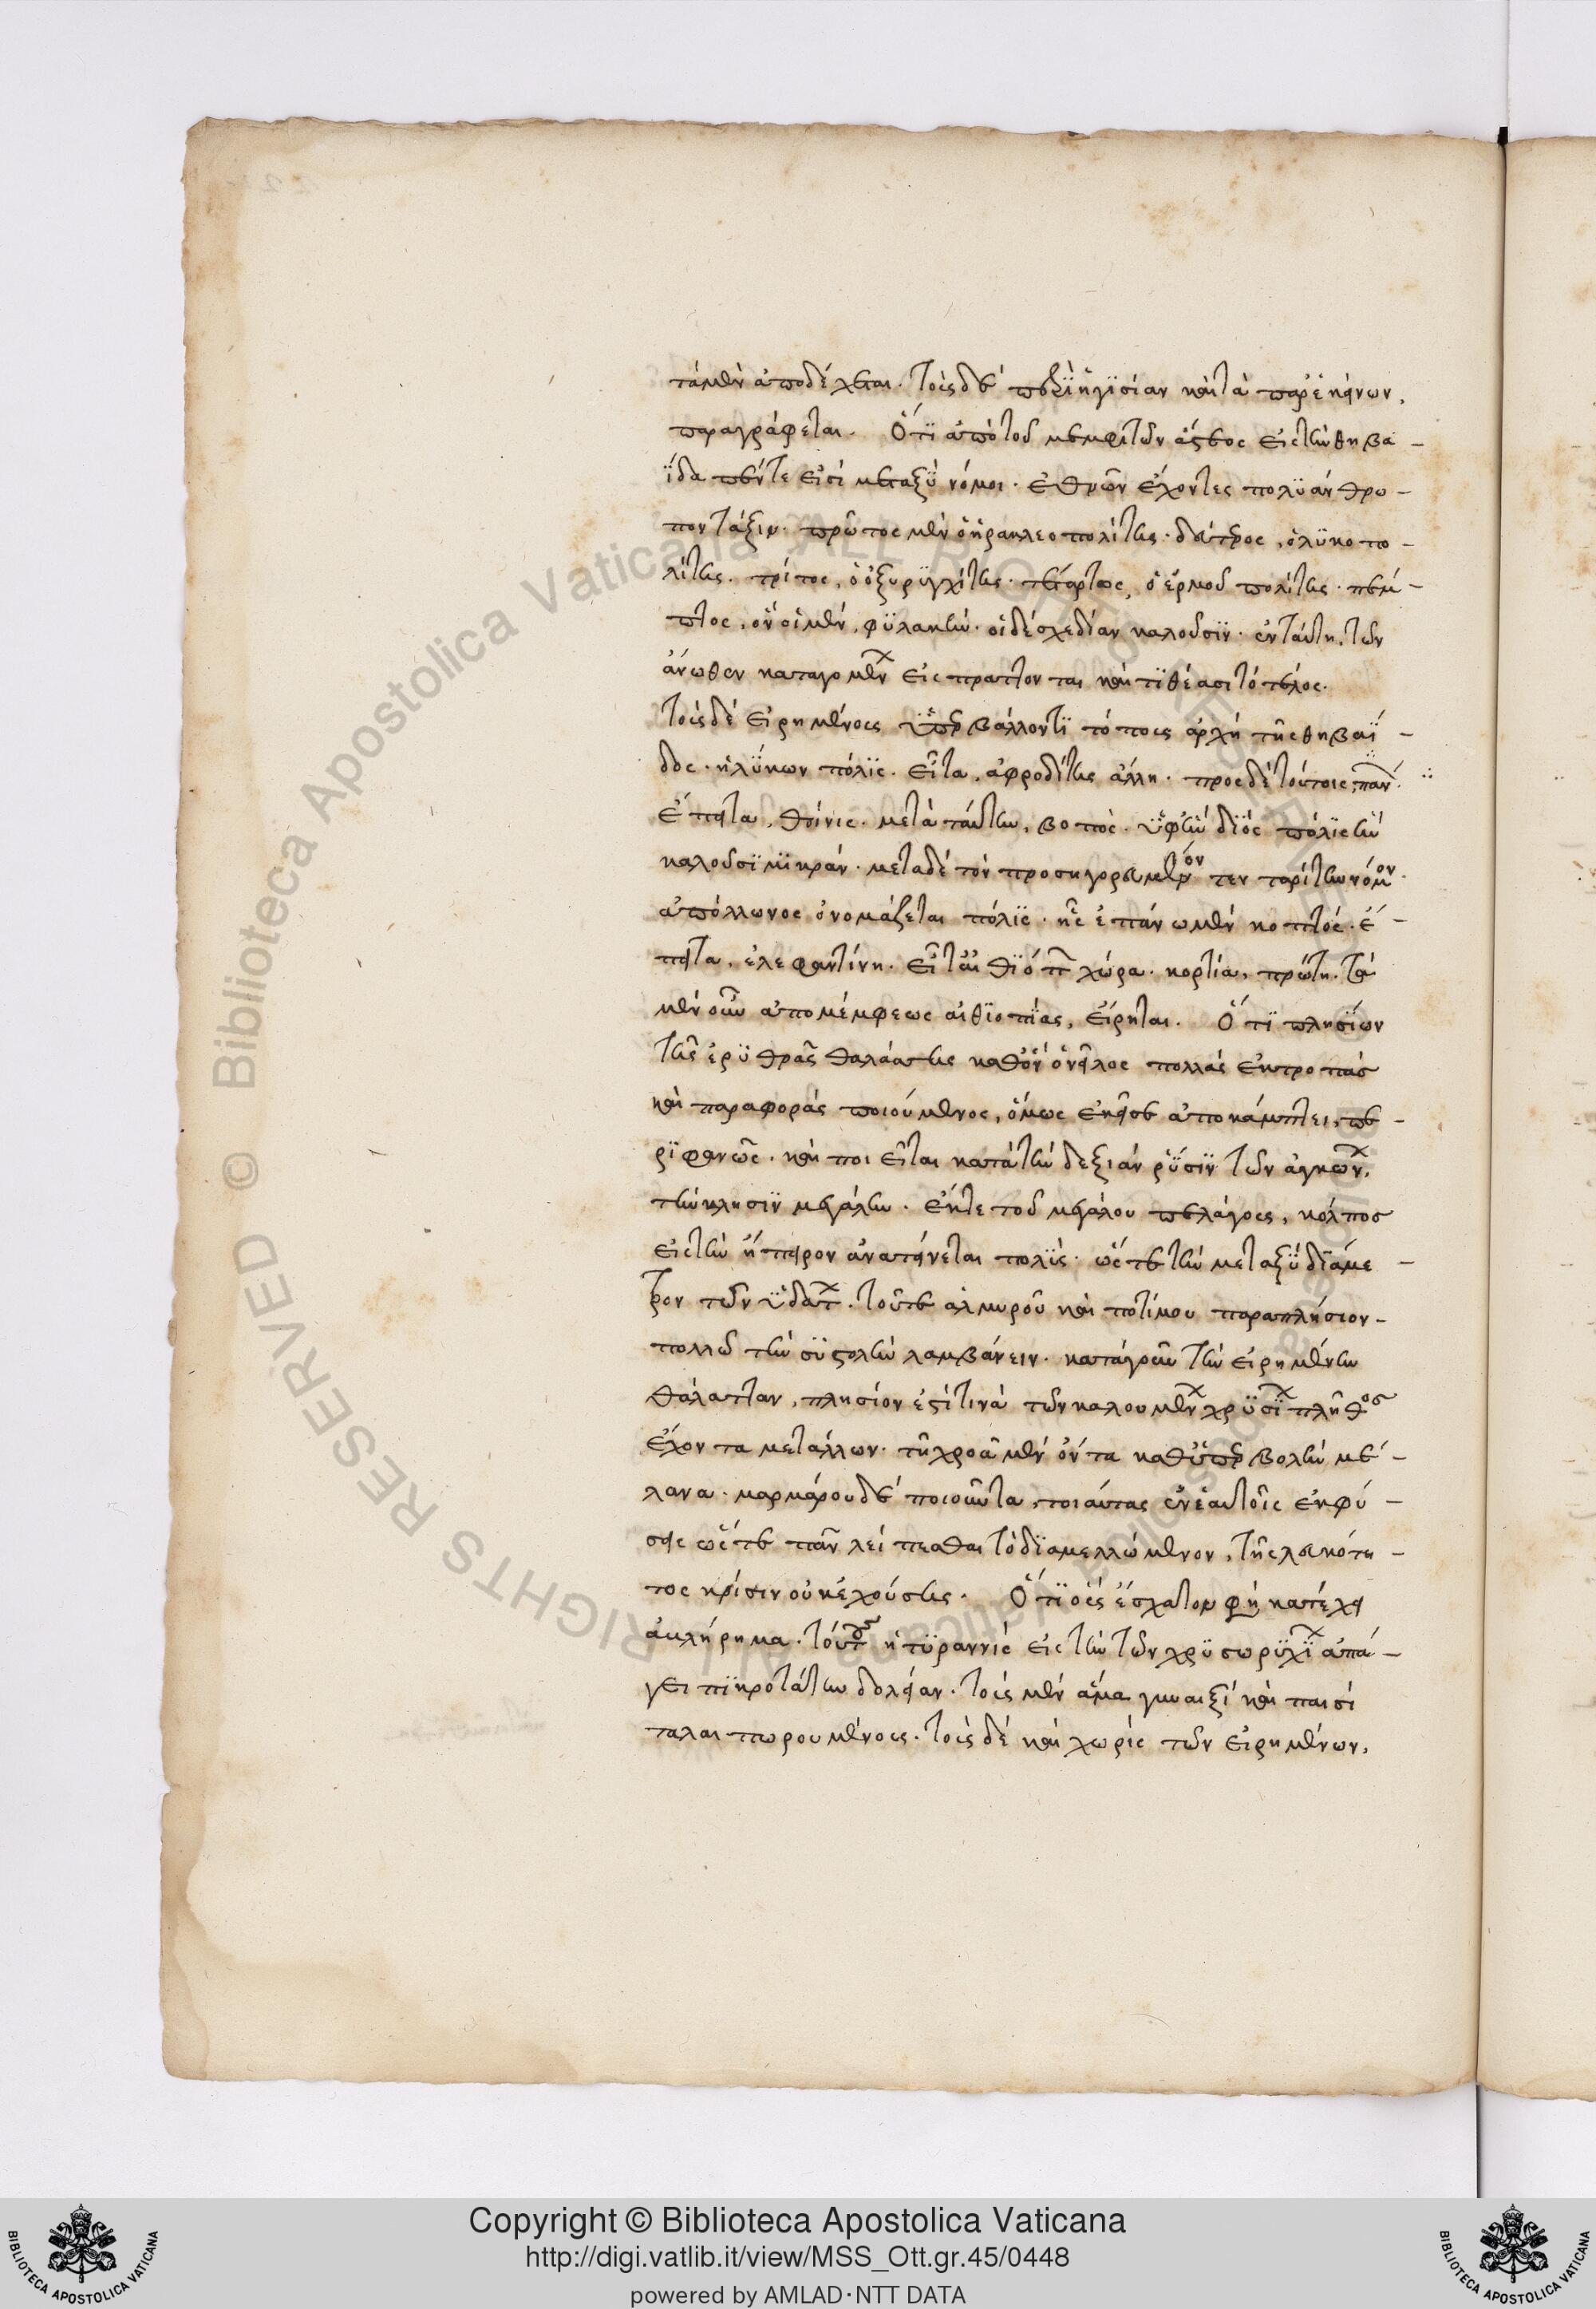 τὰ μὲν ἀποδέχεται. τοῖς δὲ πεζῆ ἡγῖσίαν καὶ τὰ παρ' ἐκείνων,
παραγράφεται. Ὅτϊ ἀπὸ τοῦ μεμφιτῶν ἄστεος εἰς τὴν θηβα-
ΐδα πέντε εἰσὶ μεταξῢ νόμοι. ἐθνῶν ἔχοντες πολϋάνθρω-
πον τάξιν. πρῶτος μὲν ὁ ἡρακλεοπολίτης. δεύτερος, ὁ λϋκοπο-
λίτης. τρίτος, ὁ ὀξυρϋγχίτης. τέταρτος, ὁ ἑρμοῦ πολίτης. πέμ-
πτος, ὃν οἱ μὲν, φϋλακὴν. οἱ δὲ σχεδίαν καλοῦσϊν. ἐν ταύτη, τῶν
ἄνωθεν καταγομένων εἰσπράττονται καὶ τϊθέασι τὸ τέλος.
τοῖς δὲ εἰρημένοις ὑπερβάλλοντϊ τόποις ἀρχὴ τῆς θηβαΐ-
δος. ἡ λϋκων πόλϊς. εἶτα, ἀφροδίτης ἄλλη. πρὸς δὲ τούτοις, πανῶν.
ἔπειτα, θοίνις. μετὰ ταύτην, βοπὸς. ὑφ' ἣν διὸς πόλϊς ἣν
καλοῦσϊ μϊκράν. μετὰ δὲ τὸν προσηγορευμένον τενταρίτην νόμον.
ἀπόλλωνος ὀνομάζεται πόλϊς. ἧς ἐπάνω μὲν κοπτός. ἔ-
πειτα, ἐλεφαντίνη. εἶτα αἰθϊόπων χώρα. κορτία, πρώτη. τὰ
μὲν οὖν ἀπὸ μέμφεως αἰθϊοπίας, εἴρηται. Ὅτϊ πλησΐον
τῆς ἐρϋθρᾶς θαλάττης καθ' ὃν ὁ νεῖλος πολλὰς ἐκτροπὰς
καὶ παραφορὰς ποιούμενος, ὅμως ἐκεῖσε ἀποκάμπτει, πε-
ρϊφανῶς. καὶ ποιεῖται κατὰ τὴν δεξιὰν ῥύσϊν τῶν ἀγκώνων,
τὴν κλησϊν μεγάλην. ἔκ τε τοῦ μεγάλου πελάγους, κόλπος
εἰς τὴν ἤπειρον ἀνατείνεται πολϋς. ὥστε τὴν μεταξῢ διάμε-
τρον τῶν ὑδάτων. τοῦ τε ἁλμυροῦ καὶ ποτίμου παραπλήσιον.
πολλῶ τὴν σϋστολὴν λαμβάνειν. κατὰ γοῦν τὴν εἰρημένην
θάλατταν, πλησίον ἐστί τινὰ τῶν καλουμένων χρϋσίων πλῆθος
ἔχοντα μετάλλων. τῆ χροᾶ μὲν ὄντα καθ' ὑπερβολὴν μέ-
λανα. μαρμάρου δὲ ποιοῦντα, τοιαύτας ἐν ἑαυτοῖς ἐκφύ-
σεις ὥστε πᾶν λείπεσθαι τὸ διαμελλώμενον, τῆς λευκότη-
τος κρίσιν οὐκ ἐχούσης. Ὅτϊ οἷς ἔσχατον φὴ κατέχει
ἀκλήρημα. τούτους ἡ τϋραννὶς εἰς τὴν τῶν χρϋσωρϋχίων ἀπά-
γει πϊκροτάτην δολείαν. τοῖς μὲν ἅμα γυναιξὶ καὶ παισὶ
ταλαιπωρουμένοις. τοῖς δὲ καὶ χωρὶς τῶν εἰρημένων,
Copyright © Biblioteca Apostolica Vaticana
http://digi.vatlib.it/view/MSS_Ott.gr.45/0448
powered by AMLAD·NTT DATA